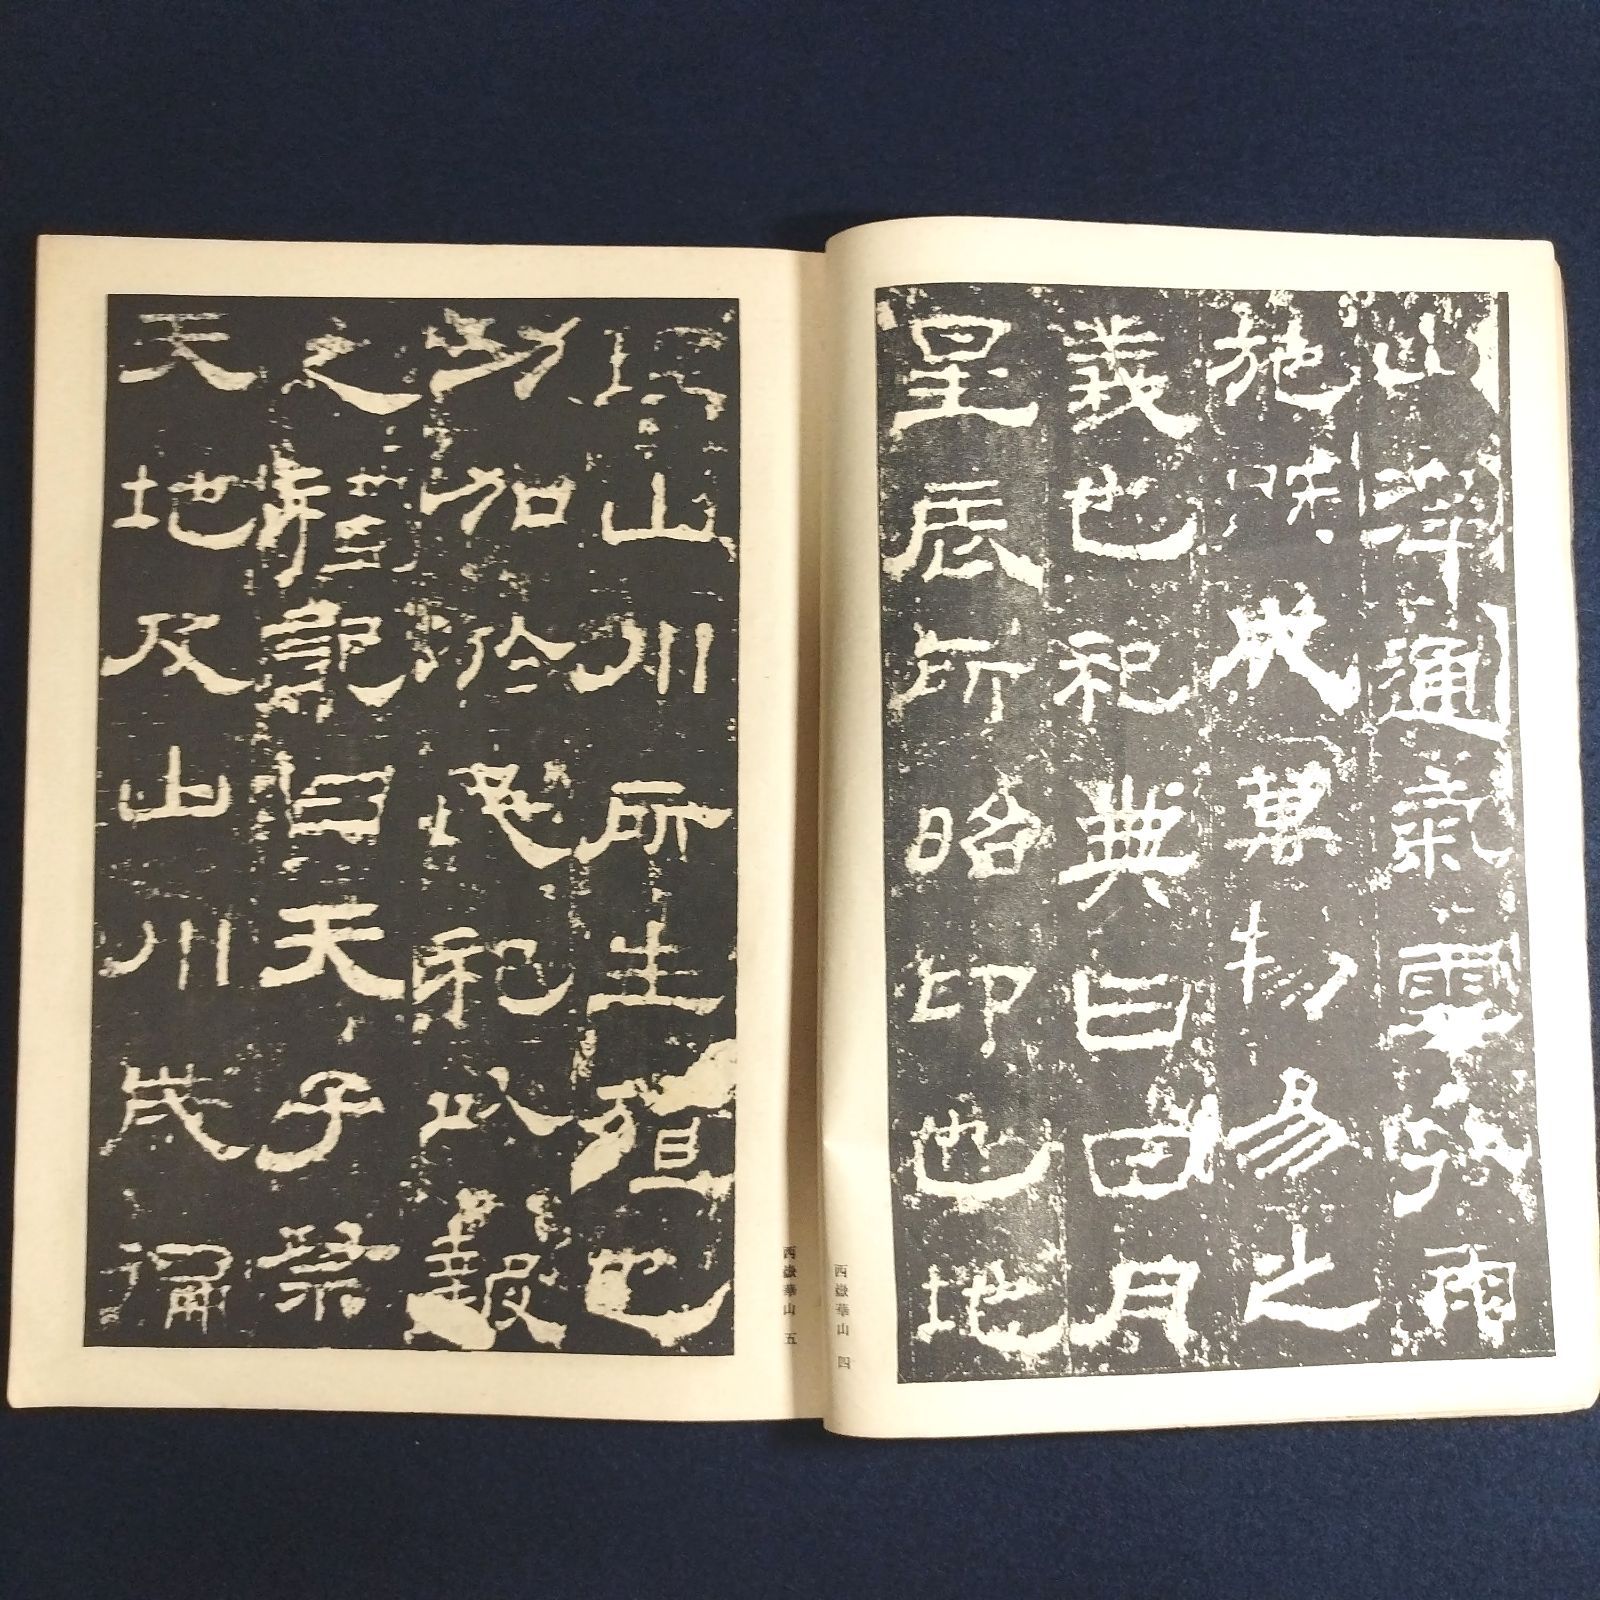 山澤通氣雲行雨
施既成萬物易之
義也祀典曰日月
星辰所昭卬也地
理山川所生殖也
功加於民祀以報
之禮記曰天子祭
天地及山川歲徧
西嶽華山 四
西嶽華山 五